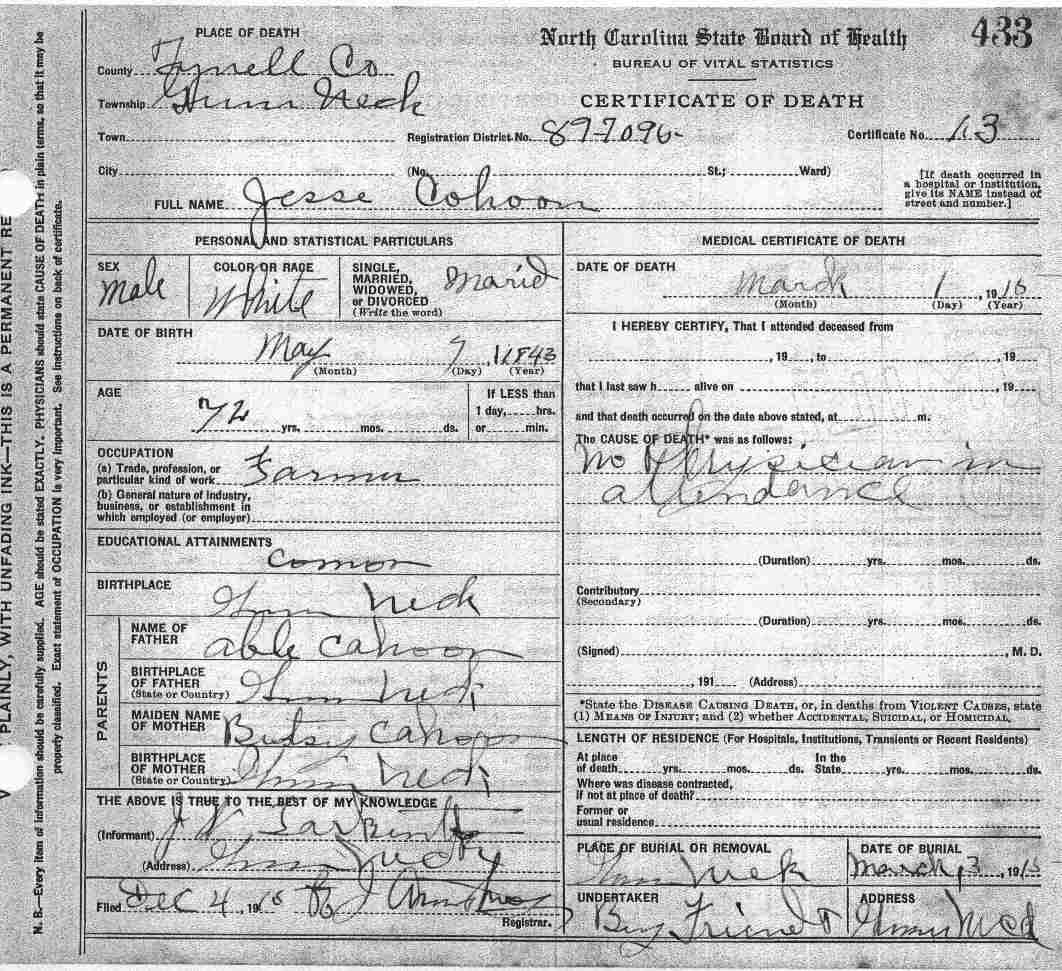 433
North Carolina State Board of Health
BUREAU OF VITAL STATISTICS
CERTIFICATE OF DEATH
PLACE OF DEATH
County Tyrrell Co
Township Gum Neck
Town
Registration District No. 897096-
Certificate No. 13
City (No. St.; Ward)
[If death occurred in
a hospital or institution,
give its NAME instead of
street and number.]
FULL NAME Jesse Cohoon
PERSONAL AND STATISTICAL PARTICULARS
SEX
Male
COLOR OR RACE
White
SINGLE,
MARRIED,
WIDOWED,
or DIVORCED
(Write the word)
Marid
DATE OF BIRTH
May 7, 1843
(Month) (Day) (Year)
AGE
72 yrs. mos. ds.
If LESS than
1 day, hrs.
or min.
OCCUPATION
(a) Trade, profession, or
particular kind of work Farmer
(b) General nature of industry,
business, or establishment in
which employed (or employer)
EDUCATIONAL ATTAINMENTS
Comon
BIRTHPLACE
Gum Neck
PARENTS
NAME OF
FATHER
Able Cahoon
BIRTHPLACE
OF FATHER
(State or Country)
Gum Neck
MAIDEN NAME
OF MOTHER
Betsy Cahoon
BIRTHPLACE
OF MOTHER
(State or Country)
Gum Neck
THE ABOVE IS TRUE TO THE BEST OF MY KNOWLEDGE
(Informant) J
(Address) Gum
Filed Dec 4, 191 J Armstrong
Registrar.
MEDICAL CERTIFICATE OF DEATH
DATE OF DEATH
March 1, 1915
(Month) (Day) (Year)
I HEREBY CERTIFY, That I attended deceased from
, 19 , to , 19
that I last saw h alive on , 19
and that death occurred on the date above stated, at m.
The CAUSE OF DEATH* was as follows:
No Physician in
attendance
(Duration) yrs. mos. ds.
Contributory
(Secondary)
(Duration) yrs. mos. ds.
(Signed) , M. D.
, 191 (Address)
*State the DISEASE CAUSING DEATH, or, in deaths from VIOLENT CAUSES, state
(1) MEANS OF INJURY; and (2) whether ACCIDENTAL, SUICIDAL, or HOMICIDAL.
LENGTH OF RESIDENCE (For Hospitals, Institutions, Transients or Recent Residents)
At place
of death yrs. mos. ds.
In the
State yrs. mos. ds.
Where was disease contracted,
if not at place of death?
Former or
usual residence
PLACE OF BURIAL OR REMOVAL
Gum Neck
DATE OF BURIAL
March, 3 1915
UNDERTAKER
By Friend
ADDRESS
Gum Neck
PLAINLY, WITH UNFADING INK—THIS IS A PERMANENT RE
N. B.—Every item of information should be carefully supplied. AGE should be stated EXACTLY. PHYSICIANS should state CAUSE OF DEATH in plain terms, so that it may be
properly classified. Exact statement of OCCUPATION is very important. See instructions on back of certificate.